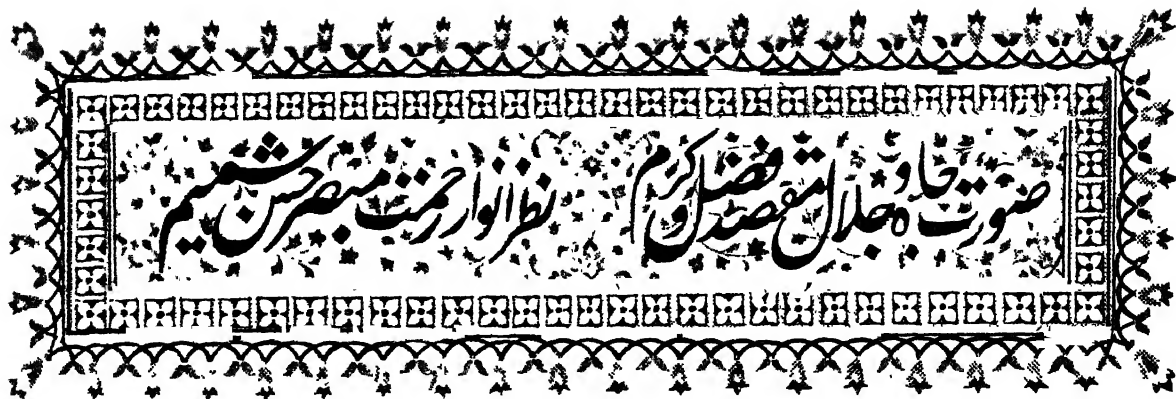 صورت جاه و جلال مقصد فضل و کرم نظر انوار رحمت مبصر حسن شمیم